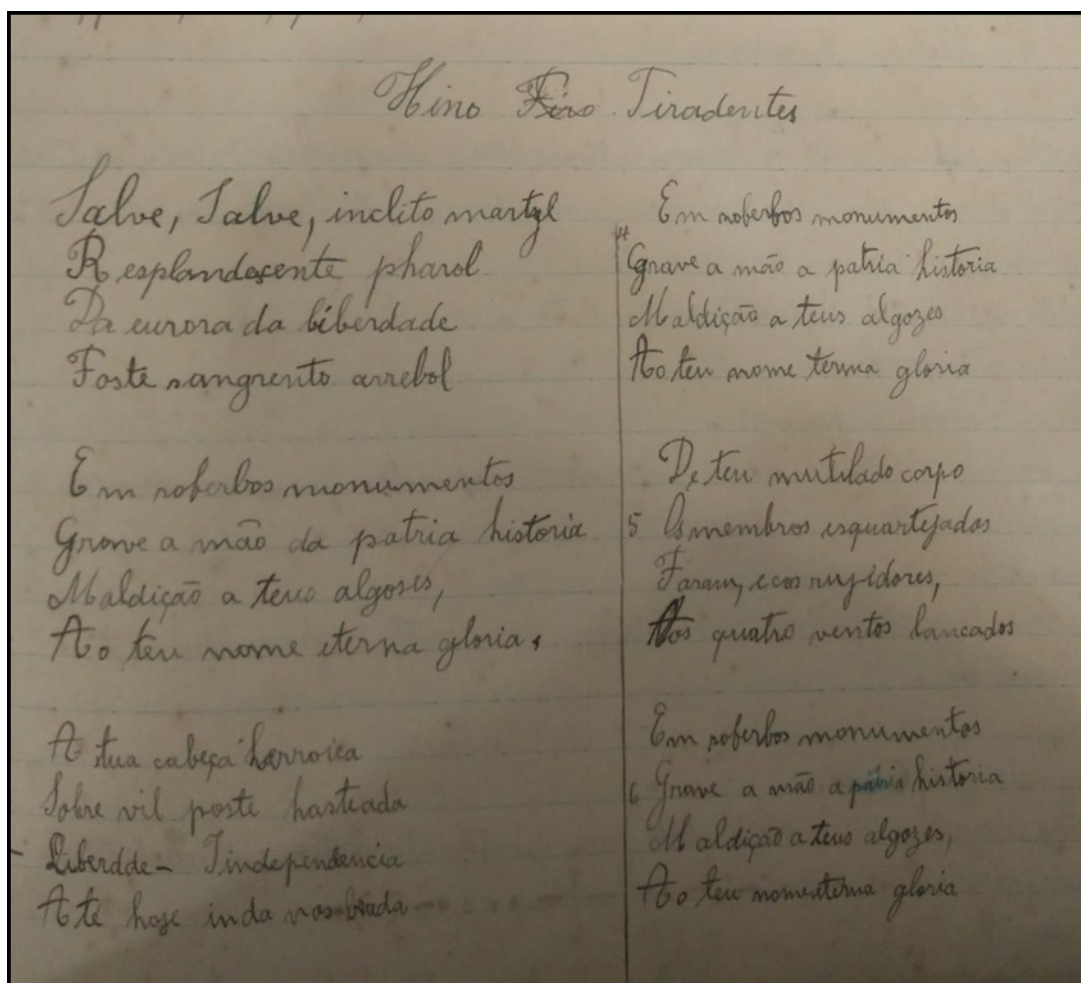 Hino Tiradentes
Salve, Salve, inclito martyl
Resplandescente pharol
Da eurora da liberdade
Foste sangrento arrebol
Em soberbos monumentos
Grave a mão da patria historia
Maldição a teus algoses,
Ao teu nome eterna gloria,
A tua cabeça herroica
Sobre vil poste hasteada
Liberdde - Iindependencia
Até hoje inda nos brada
Em soberbos monumentos
4 Grave a mão a patria historia
Maldição a teus algozes
Ao teu nome terna gloria
De teu mutilado corpo
5 Os membros esquartejados
Faram, ecos rugidores,
Aos quatro ventos lancados
Em soberbos monumentos
6 Grave a mão a pátria historia
Maldição a teus algozes,
Ao teu nome eterna gloria